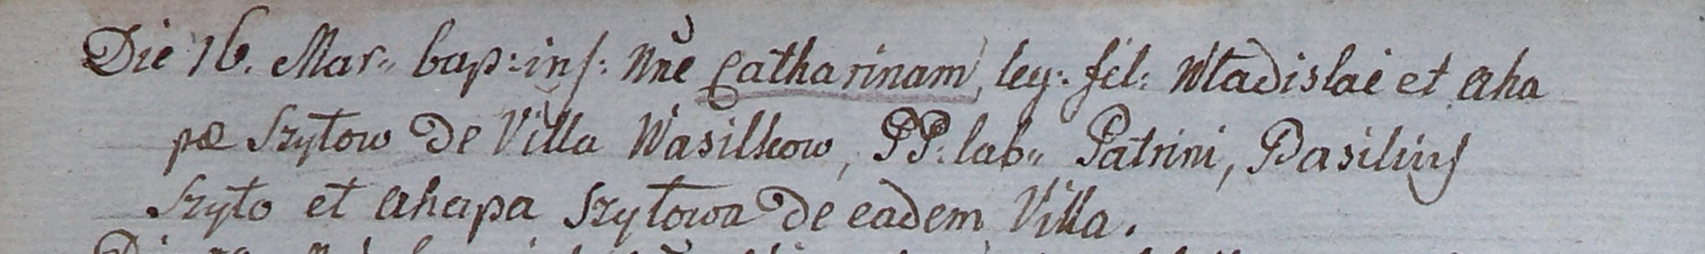 Die 16. Mar: bap: inf: Nnē Catharinam, leg: fil: Władislai et Aha
pæ Szyłow de Villa Wasilkow, PP: lab: Patrini, Basilius
Szyło et Ahapa Szyłowa de eadem Villa.